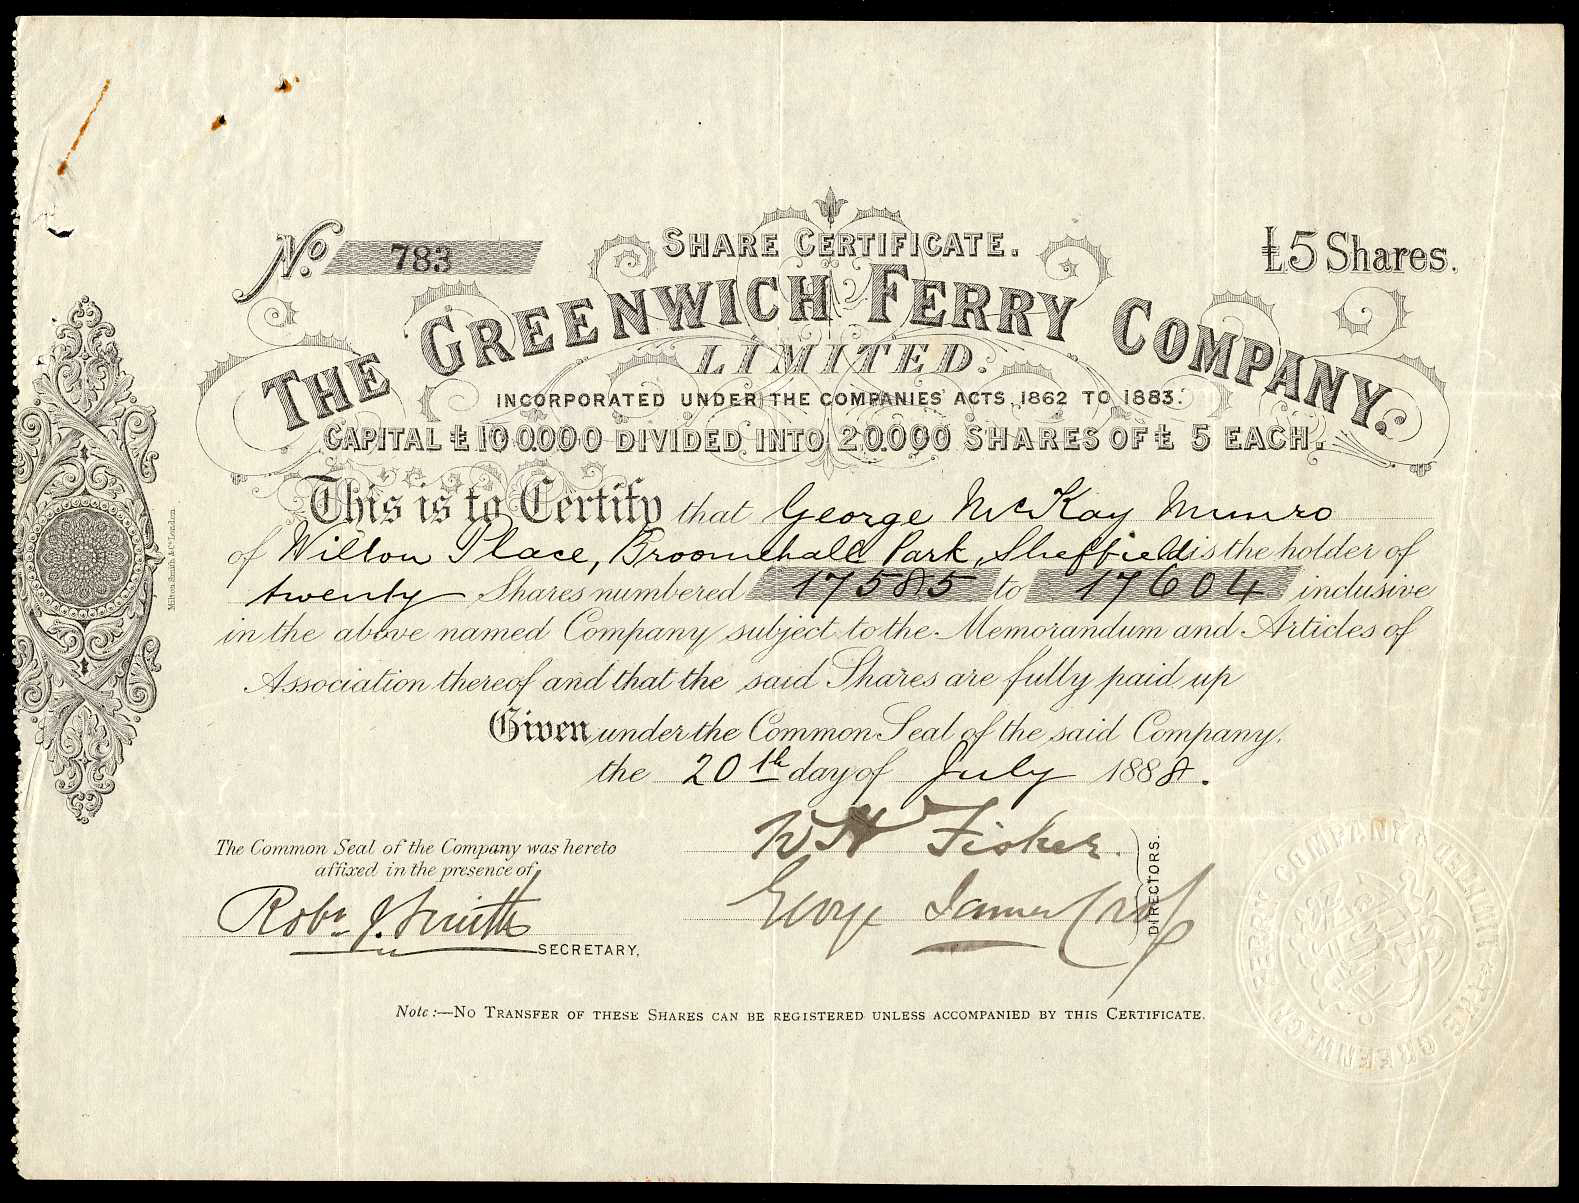 No. 783
SHARE CERTIFICATE.
£5 Shares.
THE GREENWICH FERRY COMPANY.
LIMITED.
INCORPORATED UNDER THE COMPANIES' ACTS, 1862 TO 1883.
CAPITAL £100.000 DIVIDED INTO 20.000 SHARES OF £5 EACH.
This is to Certify that George McKay Munro
of Wilton Place, Broomehall Park, Sheffield is the holder of
twenty Shares numbered 17585 to 17604 inclusive
in the above named Company subject to the Memorandum and Articles of
Association thereof and that the said Shares are fully paid up
Given under the Common Seal of the said Company,
the 20th day of July 1888.
The Common Seal of the Company was hereto
affixed in the presence of
Robt J. Smith
SECRETARY.
W H Fisher.
George James
DIRECTORS.
Note:—No TRANSFER OF THESE SHARES CAN BE REGISTERED UNLESS ACCOMPANIED BY THIS CERTIFICATE.
Milton Smith & Co London.
THE GREENWICH FERRY COMPANY LIMITED